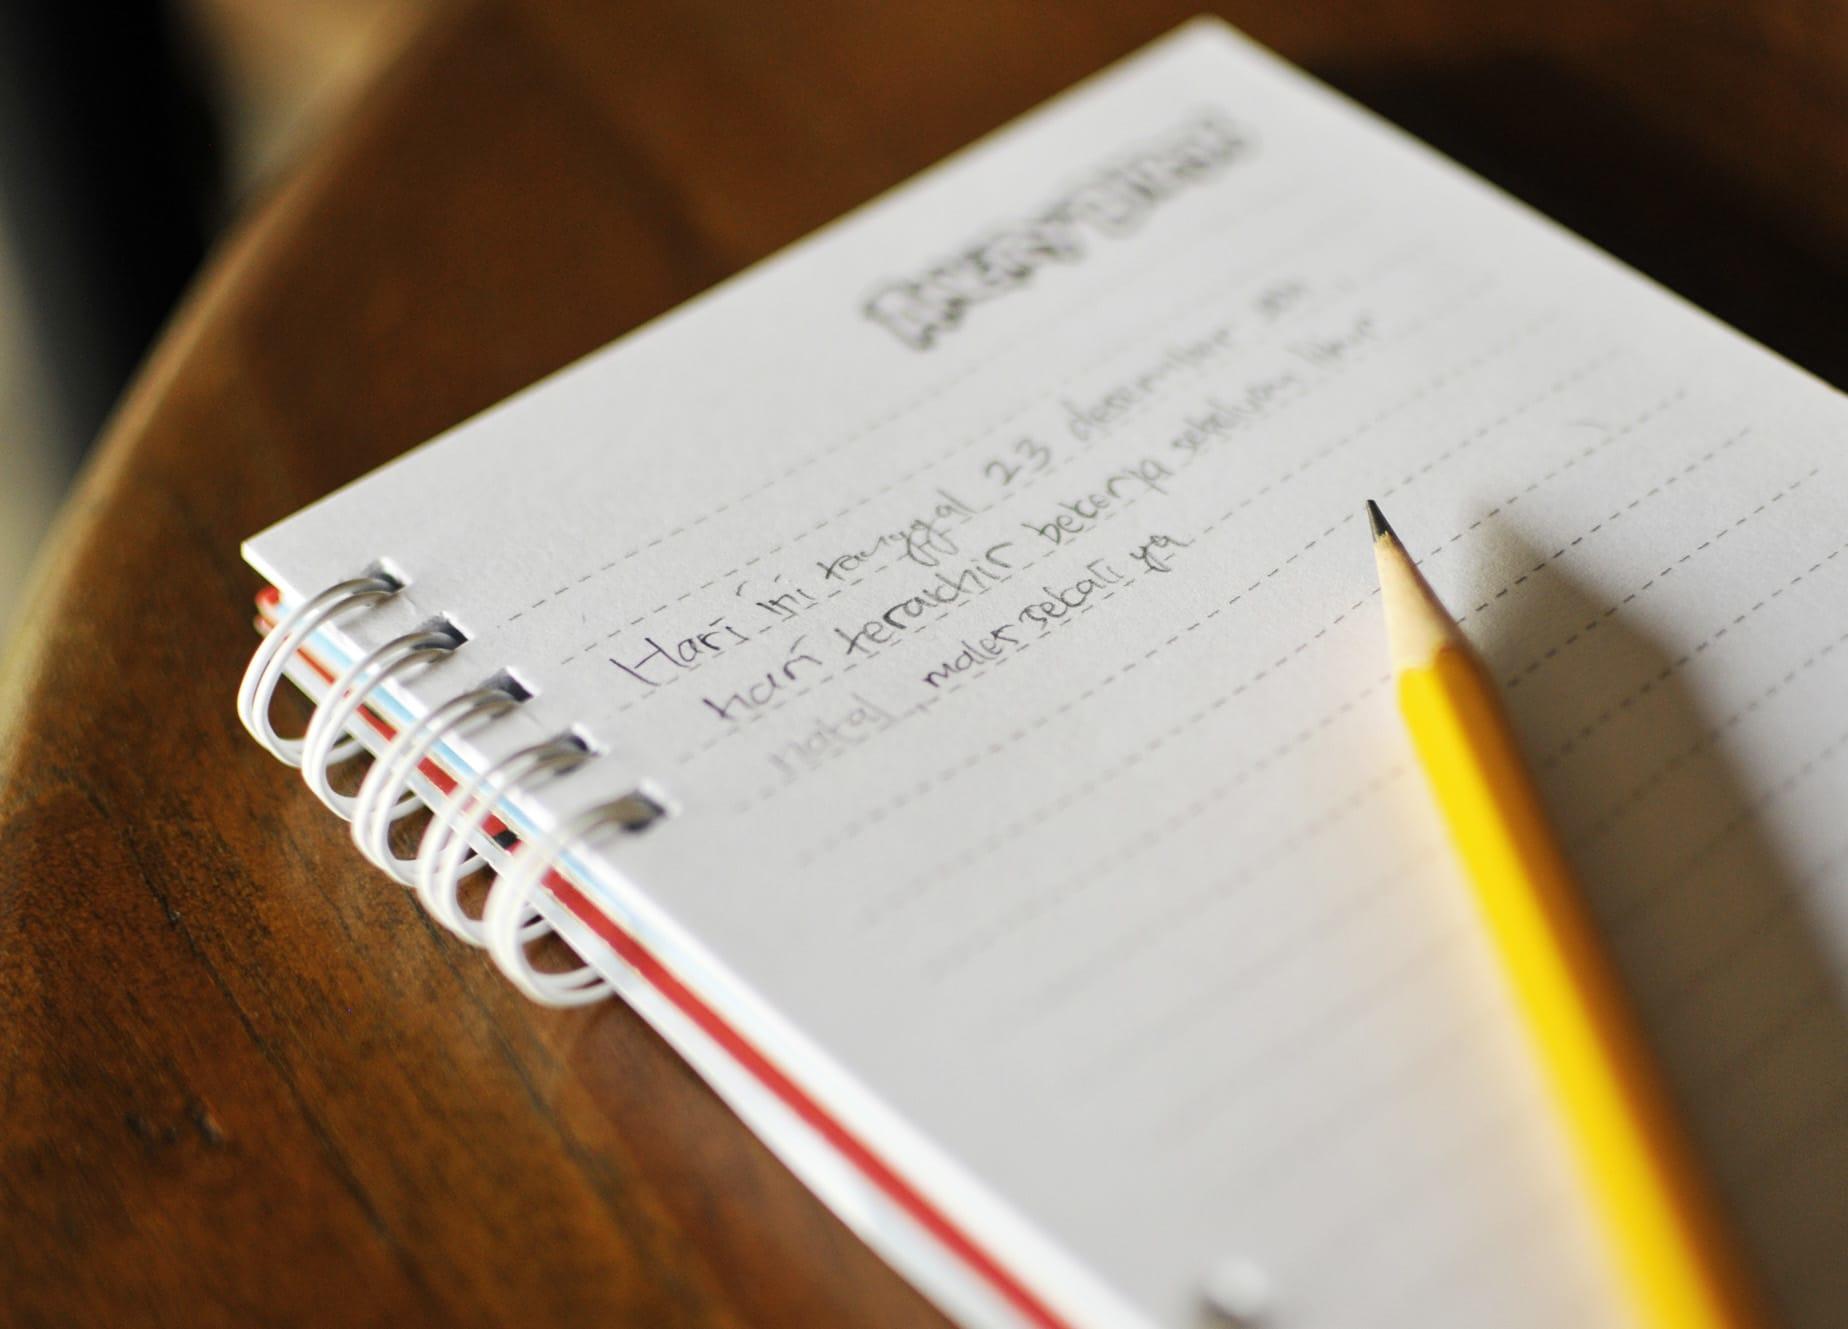 Hari ini tanggal 23 desember
hari terakhir bekerja sebelum libur
natal, males sekali ya